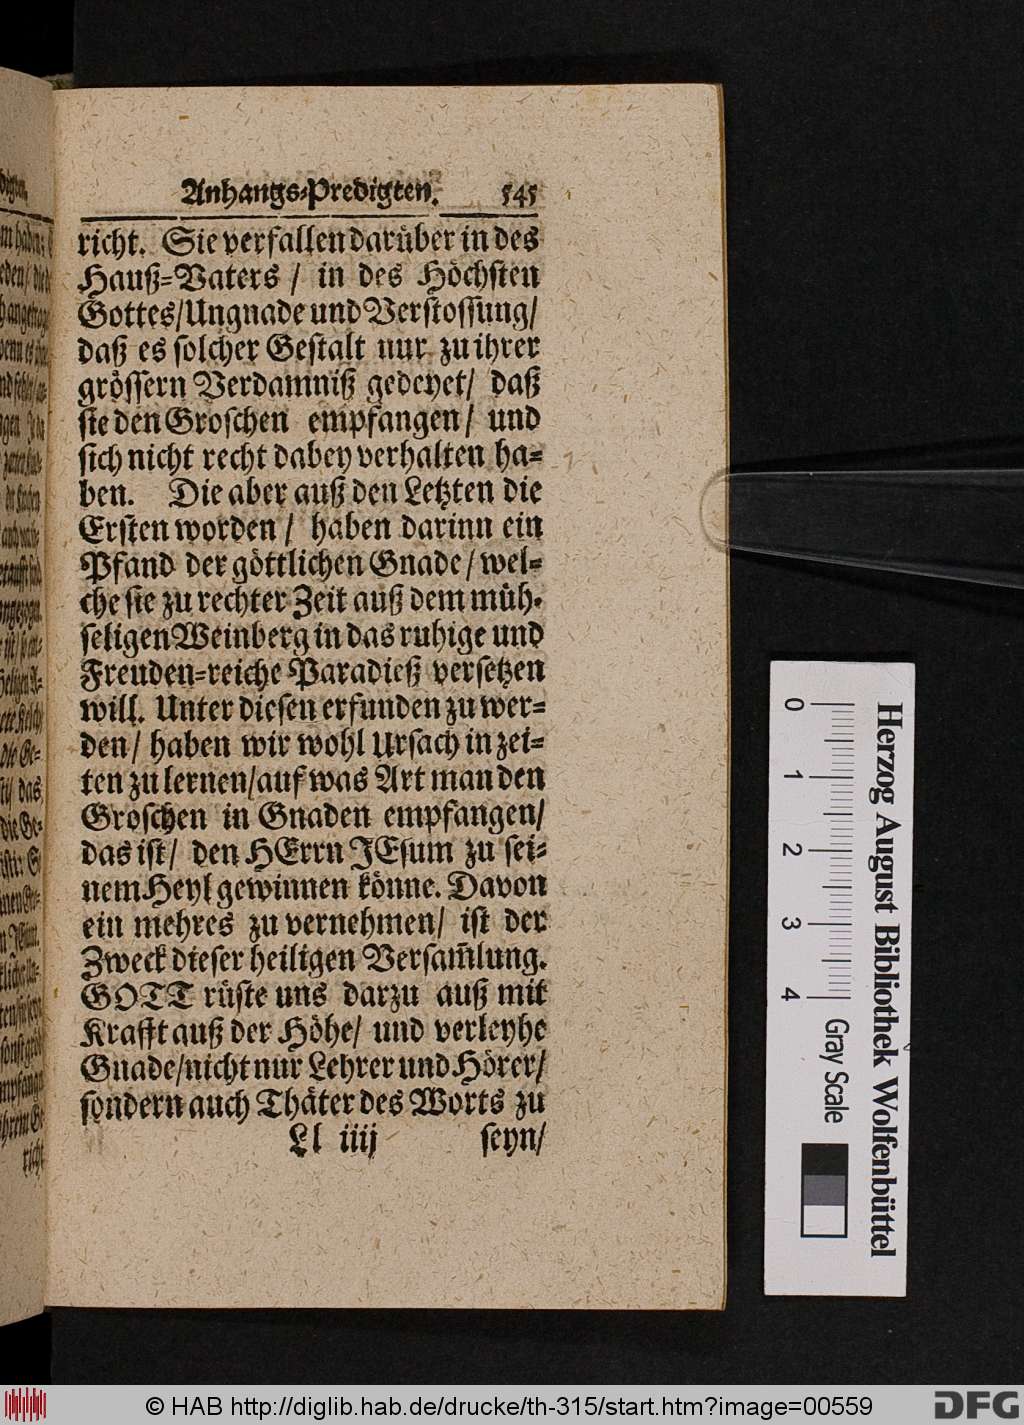 Anhangs-Predigten. 545
richt. Sie verfallen darüber in des
Hauß-Vaters / in des Höchsten
Gottes/Ungnade und Verstossung/
daß es solcher Gestalt nur zu ihrer
grössern Verdamniß gedeyet/ daß
sie den Groschen empfangen/ und
sich nicht recht dabey verhalten ha-
ben. Die aber auß den Letzten die
Ersten worden / haben darinn ein
Pfand der göttlichen Gnade / wel-
che sie zu rechter Zeit auß dem müh-
seligen Weinberg in das ruhige und
Freuden-reiche Paradieß versetzen
will. Unter diesen erfunden zu wer-
den/ haben wir wohl Ursach in zei-
ten zu lernen/auf was Art man den
Groschen in Gnaden empfangen/
das ist/ den HErrn JEsum zu sei-
nem Heyl gewinnen könne. Davon
ein mehres zu vernehmen/ ist der
Zweck dieser heiligen Versam̃lung.
GOTT rüste uns darzu auß mit
Krafft auß der Höhe/ und verleyhe
Gnade/nicht nur Lehrer und Hörer/
sondern auch Thäter des Worts zu
Ll iiij seyn/
Herzog August Bibliothek Wolfenbüttel
0 1 2 3 4 Gray Scale
© HAB http://diglib.hab.de/drucke/th-315/start.htm?image=00559
DFG